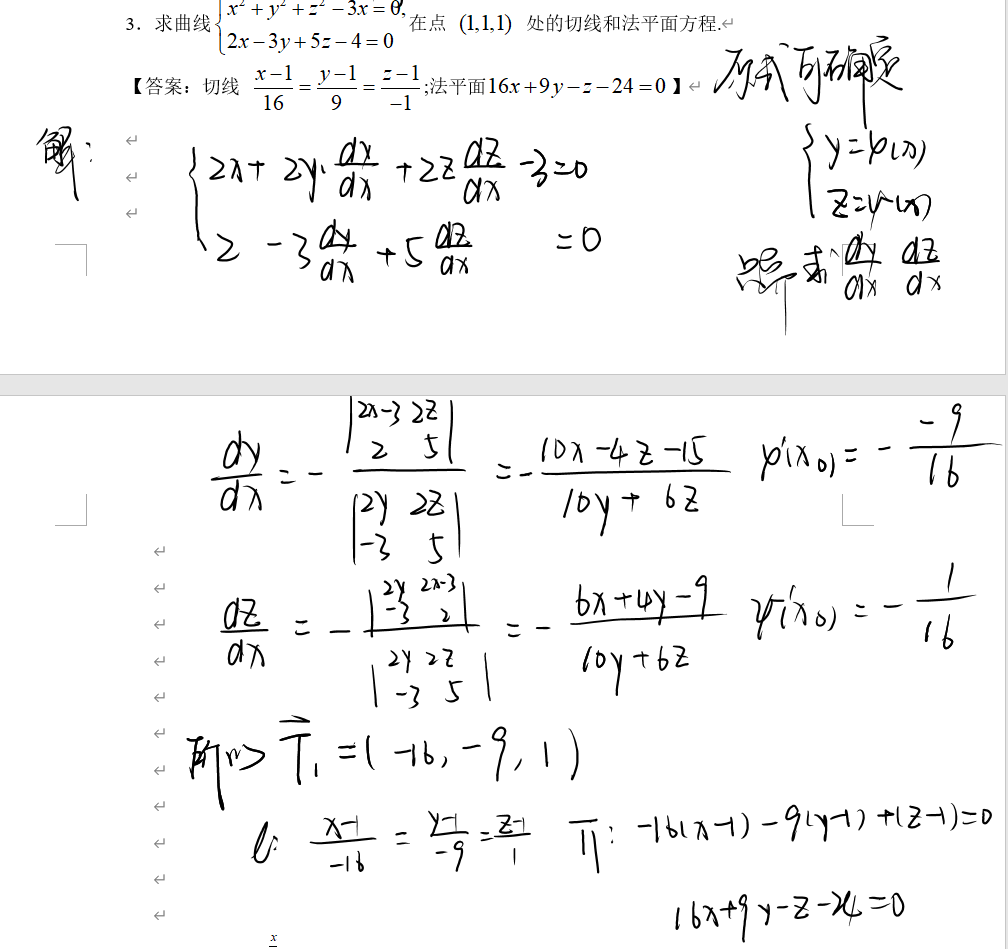 3．求曲线{x²+y²+z²−3x=0, 2x−3y+5z−4=0 在点 (1,1,1) 处的切线和法平面方程.
【答案：切线 (x−1)/16=(y−1)/9=(z−1)/−1;法平面16x+9y−z−24=0】
原式可确定
{y=φ(x)
z=ψ(x)
解：
{2x+2y·dx/dx+2z dz/dx-3=0
2 -3 dy/dx+5 dz/dx =0
只需求 dy/dx dz/dx
dy/dx=-|2x-3 2z; 2 5|/|2y 2z; -3 5|=-(10x-4z-15)/(10y+6z) φ'(x₀)=-(-9)/16
dz/dx=-|2y 2x-3; -3 2|/|2y 2z; -3 5|=-(6x+4y-9)/(10y+6z) ψ'(x₀)=-1/16
所以 T⃗₁=(-16,-9,1)
l: (x-1)/-16=(y-1)/-9=(z-1)/1 Π: -16(x-1)-9(y-1)+(z-1)=0
16x+9y-z-24=0
x